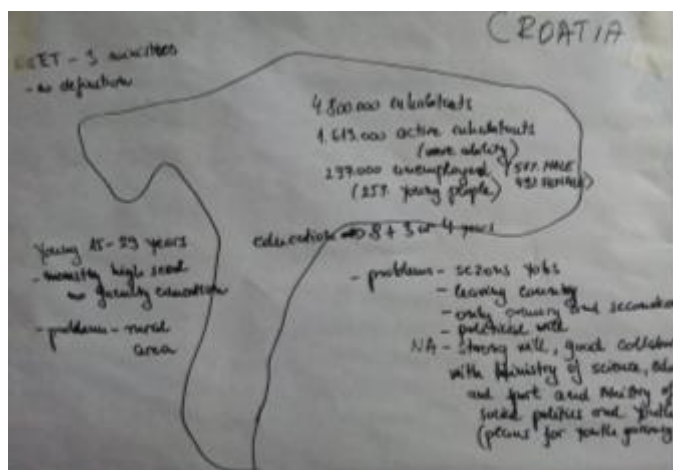 CROATIA
NEET - 3 ministries
- no definition
4.800.000 inhabitants
1.613.000 active inhabitants
(work ability)
297.000 unemployed (51% MALE
49% FEMALE)
(25% young people)
education → 8 + 3 or 4 years
Young 15-29 years
- mostly high
no faculty education
- problem - rural
area
- problems - sezons jobs
- leaving country
- only primary and secondar
- political will
NA - strong will, good collabor
with Ministry of science, edu
and sport and Ministry of
social politics and youth
(plans for youth